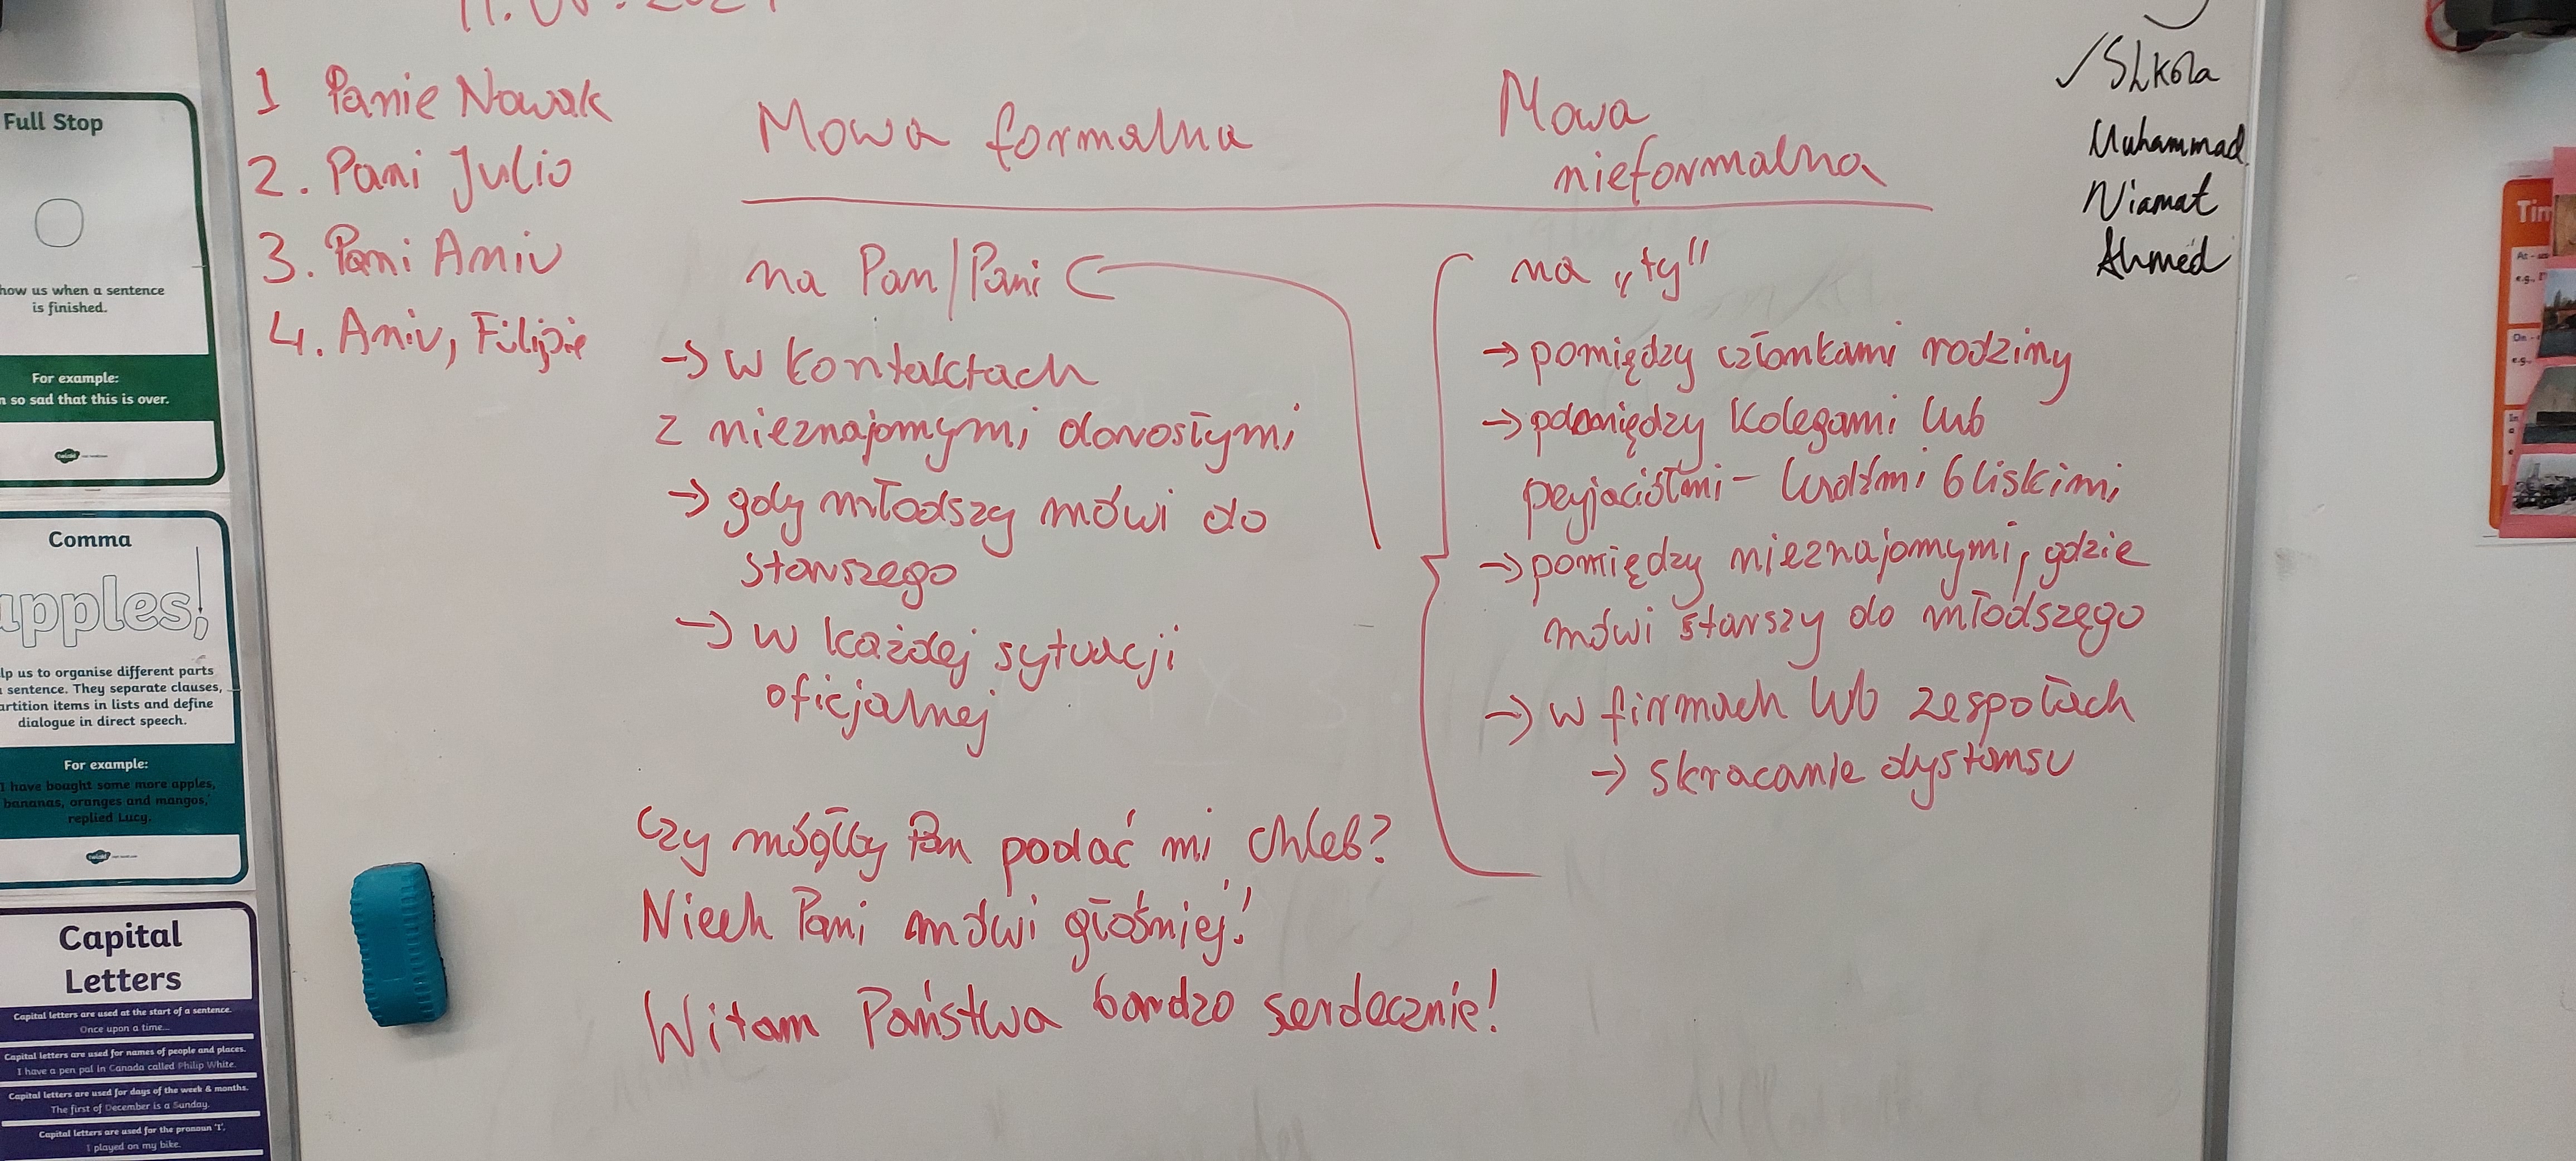 1 Panie Nowak
2. Pani Julio
3. Pani Aniu
4. Aniu, Filipie
Mowa formalna
na Pan/Pani
→ w kontaktach
z nieznajomymi dorosłymi
→ gdy młodszy mówi do
starszego
→ w każdej sytuacji
oficjalnej
Mowa
nieformalna
na „ty”
→ pomiędzy członkami rodziny
→ pomiędzy kolegami lub
przyjaciółmi – ludźmi bliskimi
→ pomiędzy nieznajomymi, gdzie
mówi starszy do młodszego
→ w firmach lub zespołach
→ skracanie dystansu
Czy mógłby Pan podać mi chleb?
Niech Pani mówi głośniej!
Witam Państwa bardzo serdecznie!
✓ Shkola
Muhammad
Niamat
Ahmed
Full Stop
how us when a sentence
is finished.
For example:
so sad that this is over.
twinkl
Comma
apples,
lp us to organise different parts
sentence. They separate clauses,
artition items in lists and define
dialogue in direct speech.
For example:
I have bought some more apples,
bananas, oranges and mangos,'
replied Lucy.
twinkl
Capital
Letters
Capital letters are used at the start of a sentence.
Once upon a time...
Capital letters are used for names of people and places.
I have a pen pal in Canada called Philip White.
Capital letters are used for days of the week & months.
The first of December is a Sunday.
Capital letters are used for the pronoun 'I'.
I played on my bike.
Tim
At
e.g.
On
e.g.
In